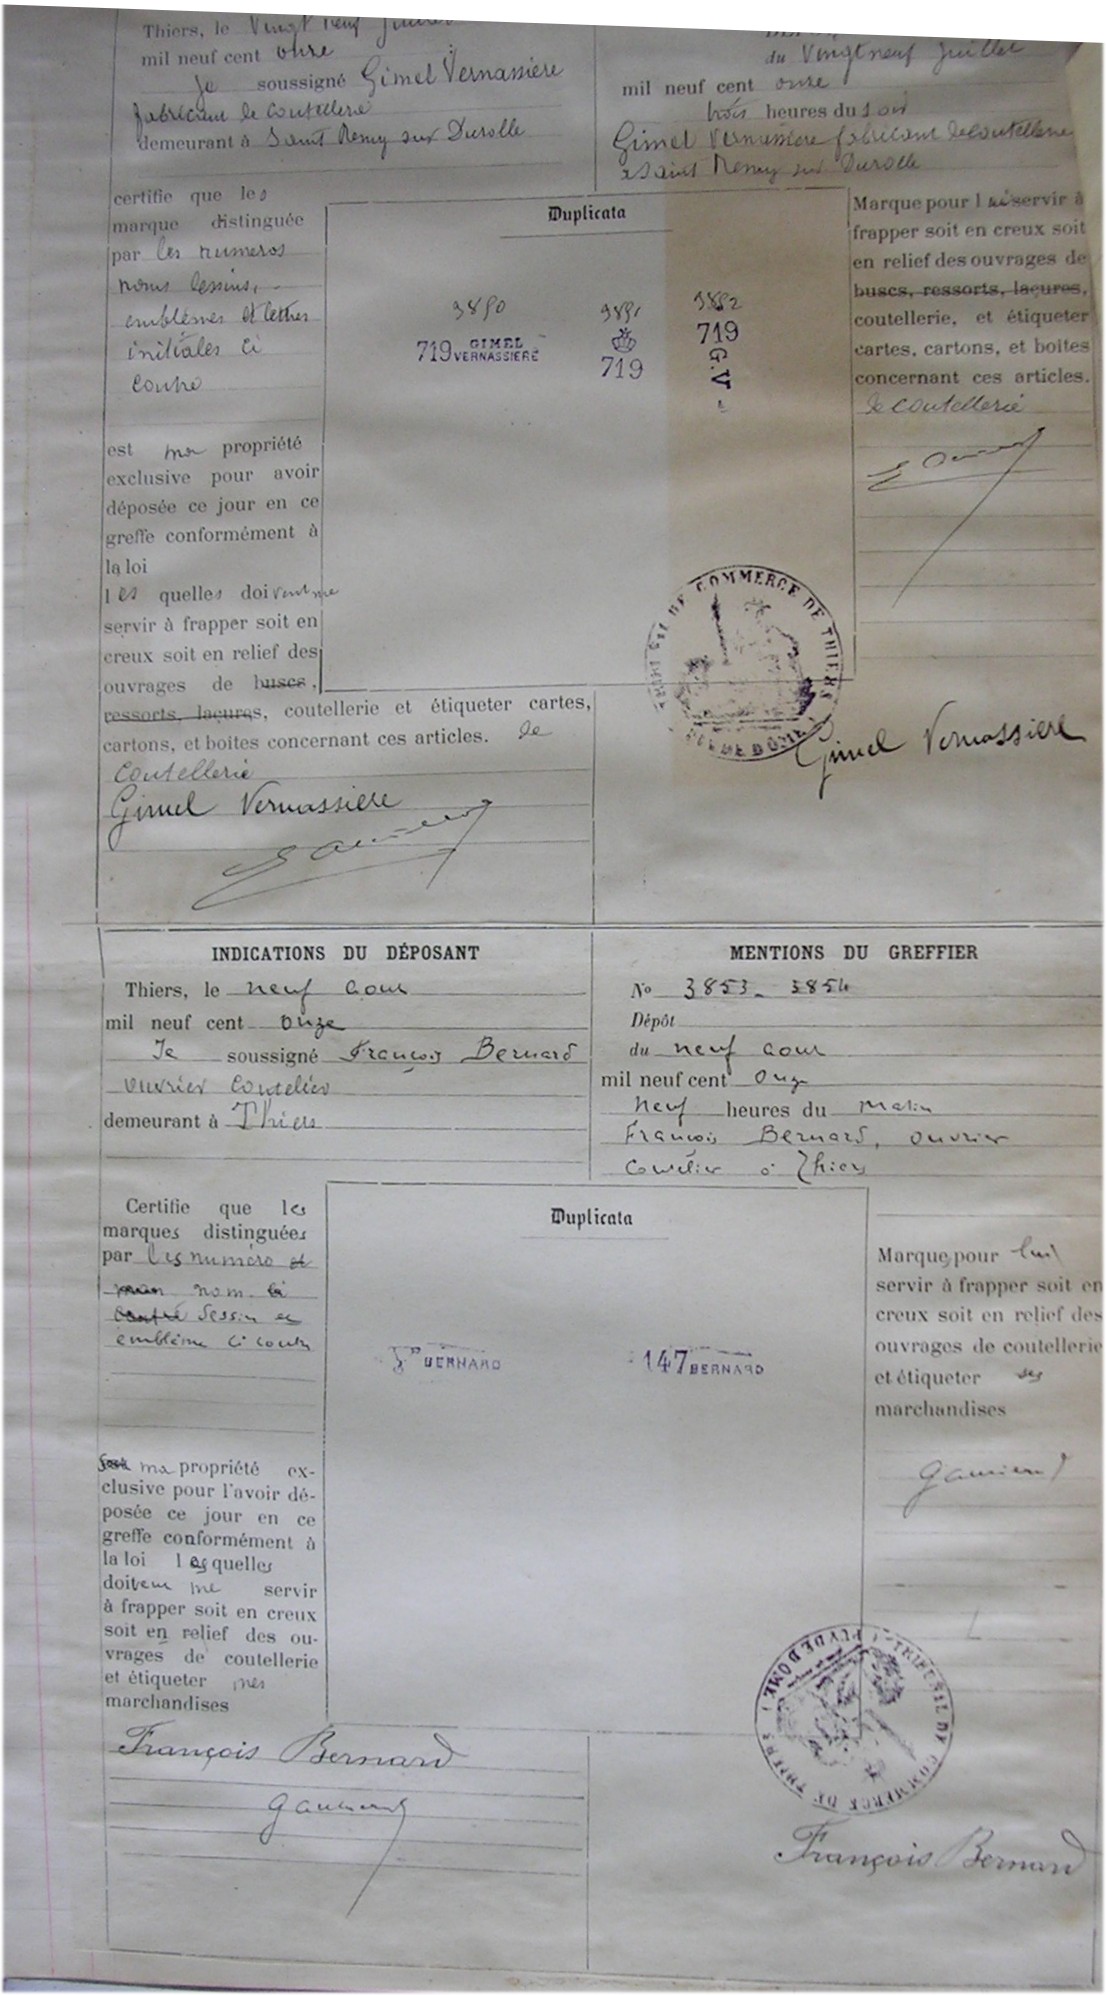 Thiers, le Vingt neuf Juillet
mil neuf cent onze
Je soussigné Gimel Vernassière
fabricant de coutellerie
demeurant à Saint Remy sur Durolle
certifie que les
marque distinguée
par les numeros
noms dessins,
emblèmes et lettres
initiales ci
contre
est ma propriété
exclusive pour avoir
déposée ce jour en ce
greffe conformément à
la loi
les quelles doivent me
servir à frapper soit en
creux soit en relief des
ouvrages de buscs,
ressorts, laçures, coutellerie et étiqueter cartes,
cartons, et boites concernant ces articles. de
coutellerie
Gimel Vernassiere
du Vingt neuf Juillet
mil neuf cent onze
trois heures du soir
Gimel Vernassière fabricant de coutellerie
a Saint Remy sur Durolle
Duplicata
3850 3851 3852
719 GIMEL VERNASSIERE
719
719 G.V
Marque pour lui servir à
frapper soit en creux soit
en relief des ouvrages de
buscs, ressorts, laçures,
coutellerie, et étiqueter
cartes, cartons, et boites
concernant ces articles.
de coutellerie
TRIBUNAL DE COMMERCE DE THIERS
PUY DE DÔME
Gimel Vernassiere
INDICATIONS DU DÉPOSANT
Thiers, le neuf aout
mil neuf cent onze
Je soussigné François Bernard
ouvrier coutelier
demeurant à Thiers
MENTIONS DU GREFFIER
No 3853 - 3854
Dépôt
du neuf aout
mil neuf cent onze
neuf heures du matin
François Bernard, ouvrier
coutelier à Thiers
Certifie que les
marques distinguées
par les numéro et
nom ci
contre dessin et
emblème ci contre
ma propriété ex-
clusive pour l'avoir dé-
posée ce jour en ce
greffe conformément à
la loi lesquelles
doivent me servir
à frapper soit en creux
soit en relief des ou-
vrages de coutellerie
et étiqueter mes
marchandises
François Bernard
Duplicata
BERNARD
147 BERNARD
Marque pour lui
servir à frapper soit en
creux soit en relief des
ouvrages de coutellerie
et étiqueter ses
marchandises
TRIBUNAL DE COMMERCE DE THIERS
PUY DE DOME
François Bernard